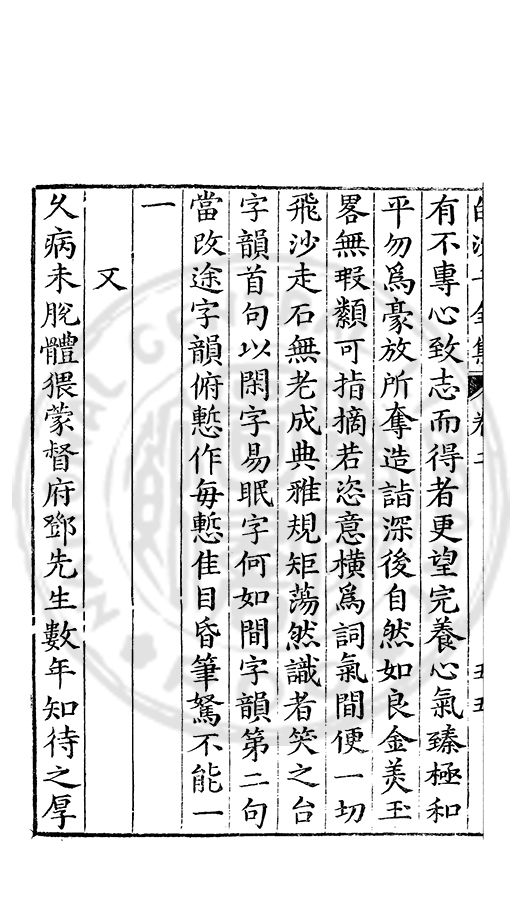 白沙子全集 卷二 五五
有不專心致志而得者更望完養心氣臻極和
平勿爲豪放所奪造詣深後自然如良金美玉
畧無瑕纇可指摘若恣意橫爲詞氣間便一切
飛沙走石無老成典雅規矩蕩然識者笑之台
字韻首句以閑字易眠字何如間字韻第二句
當改途字韻俯慙作每慙佳目昏筆駑不能一
一
又
久病未脫體猥蒙督府鄧先生數年知待之厚